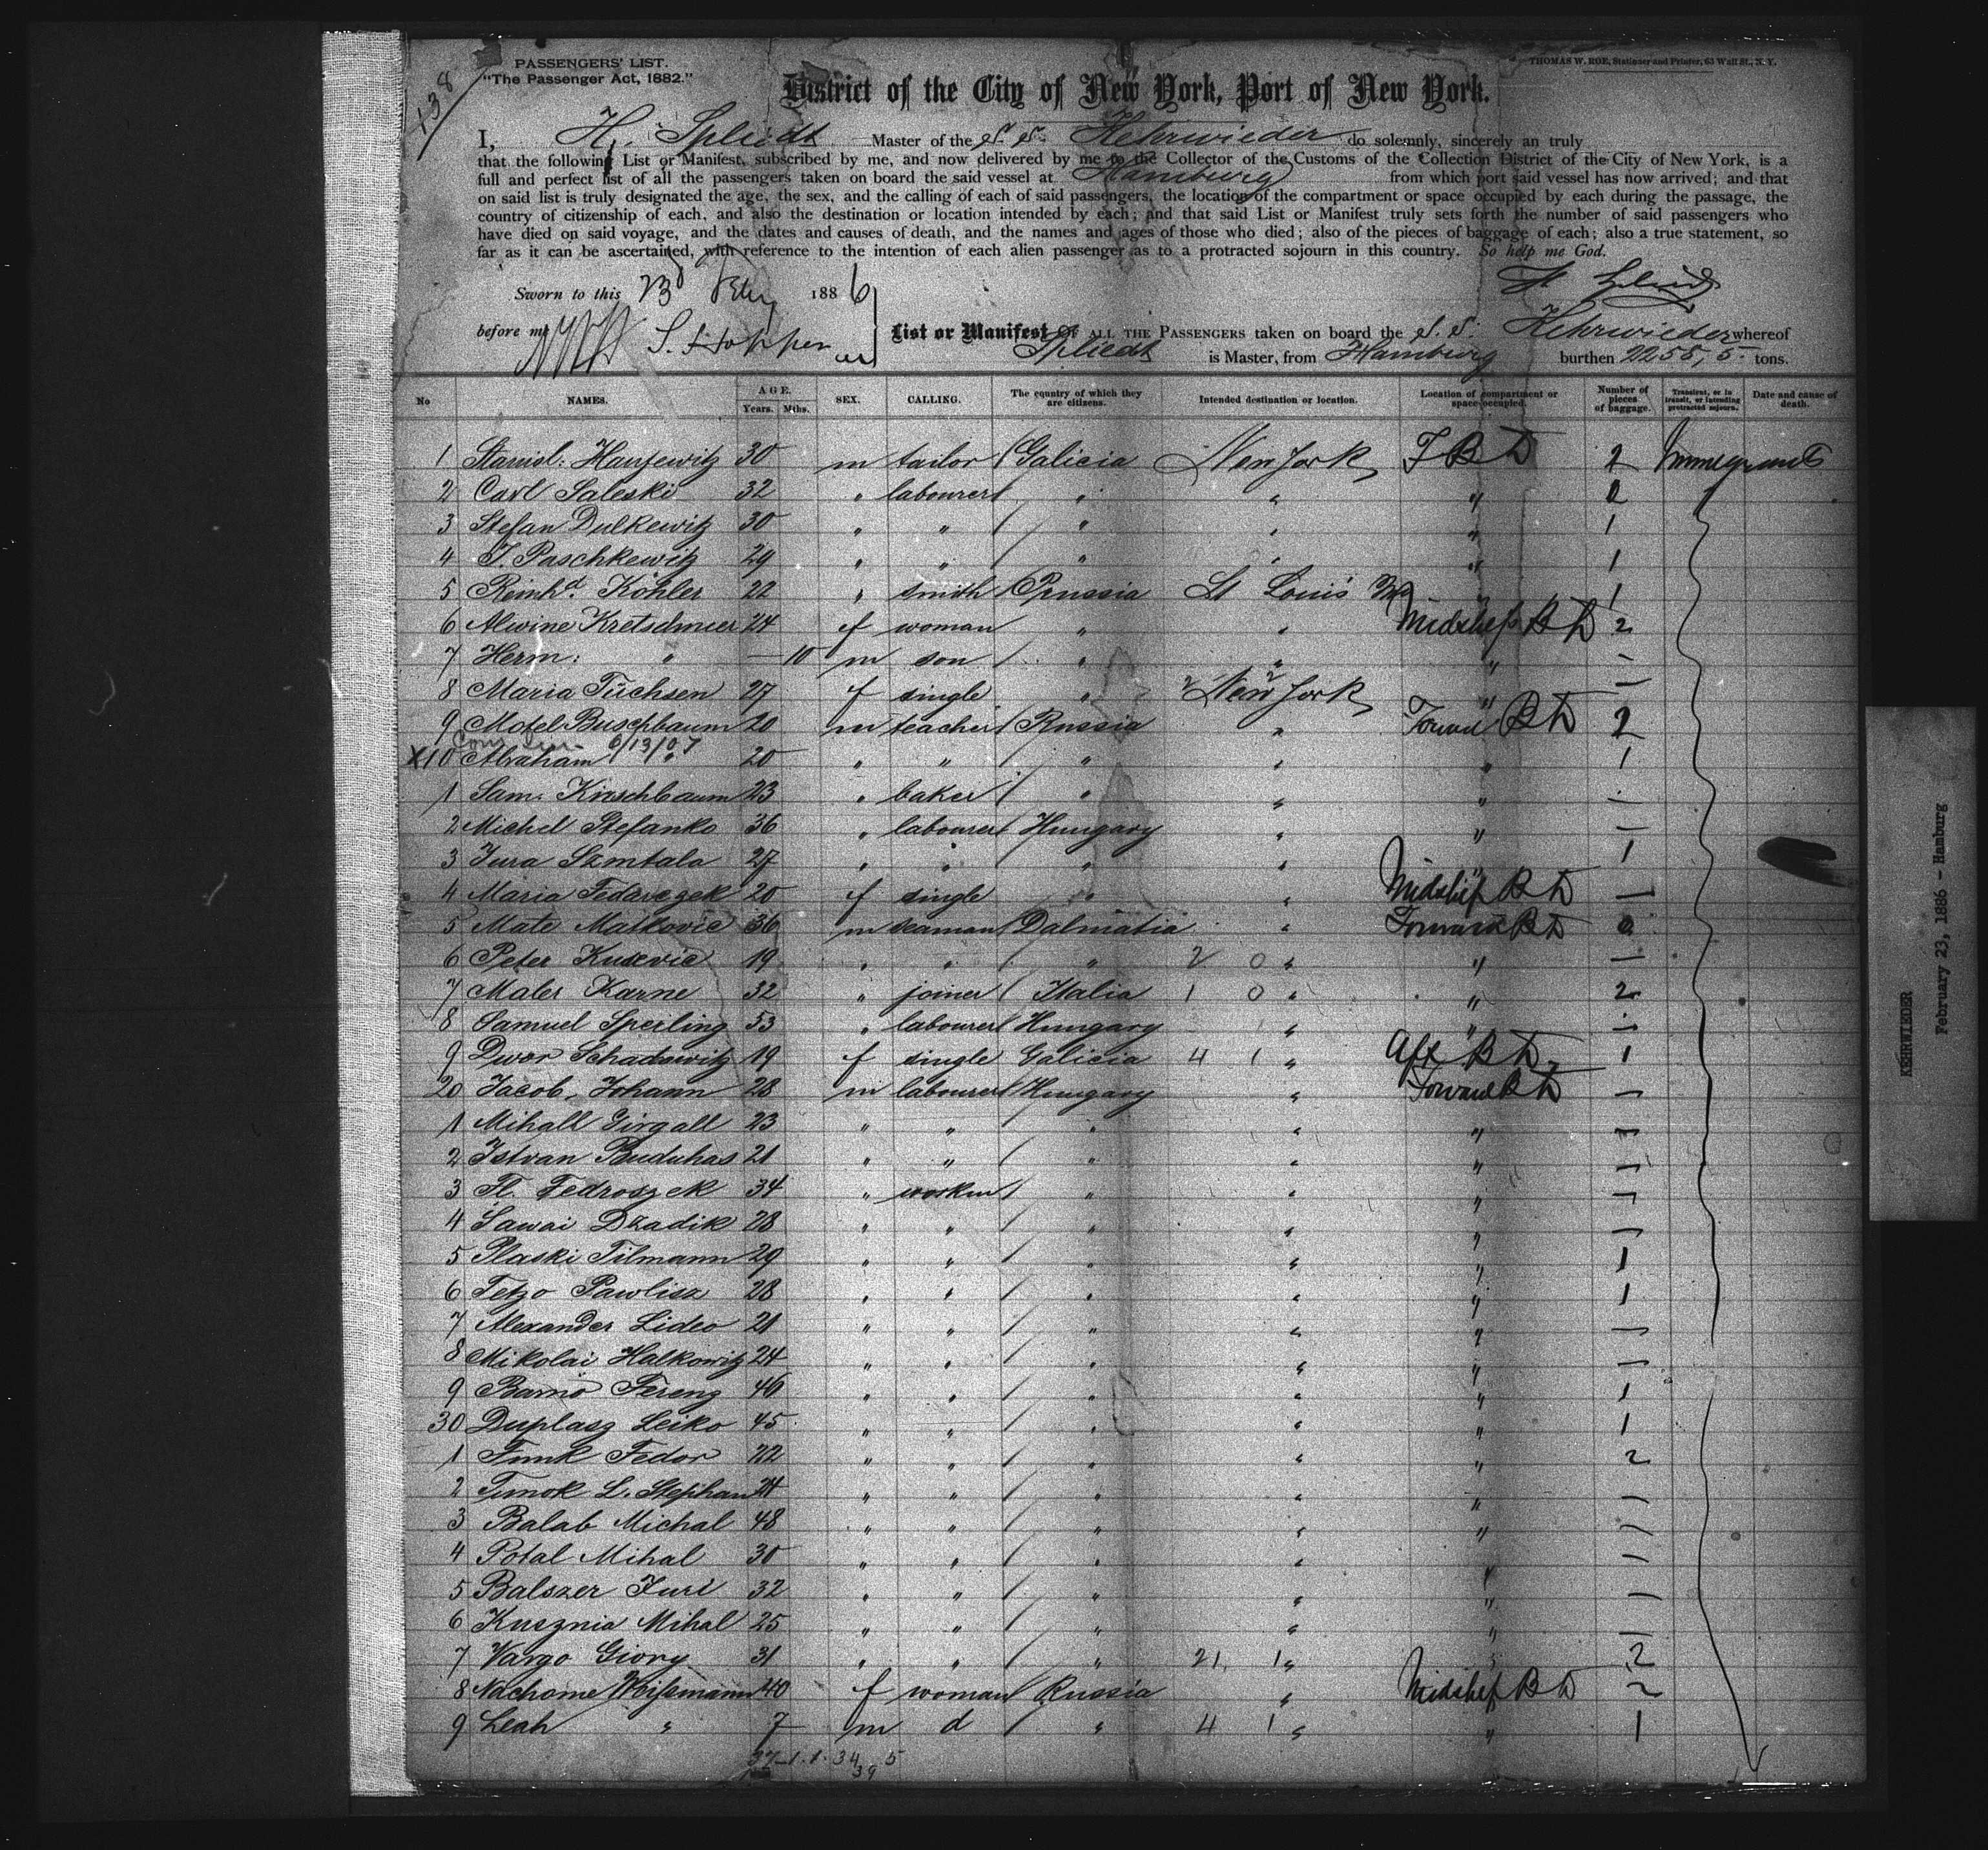 138
PASSENGERS' LIST.
"The Passenger Act, 1882."
THOMAS W. ROE, Stationer and Printer, 63 Wall St., N. Y.
District of the City of New York, Port of New York.
I, H. Spliedt Master of the S. S. Kehrwieder do solemnly, sincerely an truly
that the following List or Manifest, subscribed by me, and now delivered by me to the Collector of the Customs of the Collection District of the City of New York, is a
full and perfect list of all the passengers taken on board the said vessel at Hamburg from which port said vessel has now arrived; and that
on said list is truly designated the age, the sex, and the calling of each of said passengers, the location of the compartment or space occupied by each during the passage, the
country of citizenship of each, and also the destination or location intended by each; and that said List or Manifest truly sets forth the number of said passengers who
have died on said voyage, and the dates and causes of death, and the names and ages of those who died; also of the pieces of baggage of each; also a true statement, so
far as it can be ascertained, with reference to the intention of each alien passenger as to a protracted sojourn in this country. So help me God.
H Spliedt
Sworn to this 23 Feby 1886
before me
List or Manifest OF ALL THE PASSENGERS taken on board the S. S. Kehrwieder whereof
Spliedt is Master, from Hamburg burthen 2255,5 tons.
No NAMES. AGE. Years. Mths. SEX. CALLING. The country of which they are citizens. Intended destination or location. Location of compartment or space occupied. Number of pieces of baggage. Transient, or in transit, or intending protracted sojourn. Date and cause of death.
1 Stanisl: Hausewitz 30 m tailor Galicia New York F B D 2 Immegrants
2 Carl Saleski 32 " labourer " " " 2
3 Stefan Dulkewitz 30 " " " " " 1
4 T. Paschkewitz 29 " " " " " 1
5 Reinhd. Köhler 22 " smith Prussia St Louis Mo " 1
6 Alwine Kretschmer 24 f woman " " Midships B D 2
7 Herm: " — 10 m son " " " —
8 Maria Füchsen 27 f single " New York " —
9 Motel Buschbaum 20 m teacher Russia " Forwd B D 2
6/13/07
X10 Abraham " 20 " " " " " 1
1 Sam. Kirschbaum 23 " baker " " " —
2 Michel Stefanko 36 " labourer Hungary " " —
3 Jura Szmtala 27 " " " " " 1
4 Maria Fedorczek 20 f single " " Midship B D —
5 Mate Matkovic 36 m seaman Dalmatia " Forward B D 0
6 Peter Kusevic 19 " " " 2 0 " " —
7 Maler Karne 32 " joiner Italia 1 0 " " 2
8 Samuel Sperling 53 " labourer Hungary " " —
9 Dwor Schadowitz 19 f single Galicia 4 1 " Aft B D 1
20 Jacob, Johann 28 m labourer Hungary " Forward B D —
1 Mihall Girgall 23 " " " " " —
2 Istvan Buduhas 21 " " " " " —
3 Fl. Fedroszek 34 " workm " " " —
4 Sawai Dzadik 28 " " " " " —
5 Plaski Tilmann 29 " " " " " 1
6 Fetzo Pawlisz 28 " " " " " 1
7 Alexander Lideo 21 " " " " " —
8 Mikolai Halkowitz 24 " " " " " —
9 Barno Ferenz 40 " " " " " 1
30 Duplasz Leiko 45 " " " " " 1
1 Funk Fedor 22 " " " " " 2
2 Timok L. Stephan 24 " " " " " —
3 Balab Michal 48 " " " " " —
4 Potal Mihal 30 " " " " " —
5 Balszer Juri 32 " " " " " —
6 Kusznia Mihal 25 " " " " " —
7 Vargo Giory 31 " " " 21 1 " " 2
8 Nachome Weissmann 40 f woman Russia " Midship B D 2
9 Leah " 7 m d " 4 1 " " 1
37 — 1 . 1 . 34 5
39
KEHRWIEDER
February 23, 1886 - Hamburg